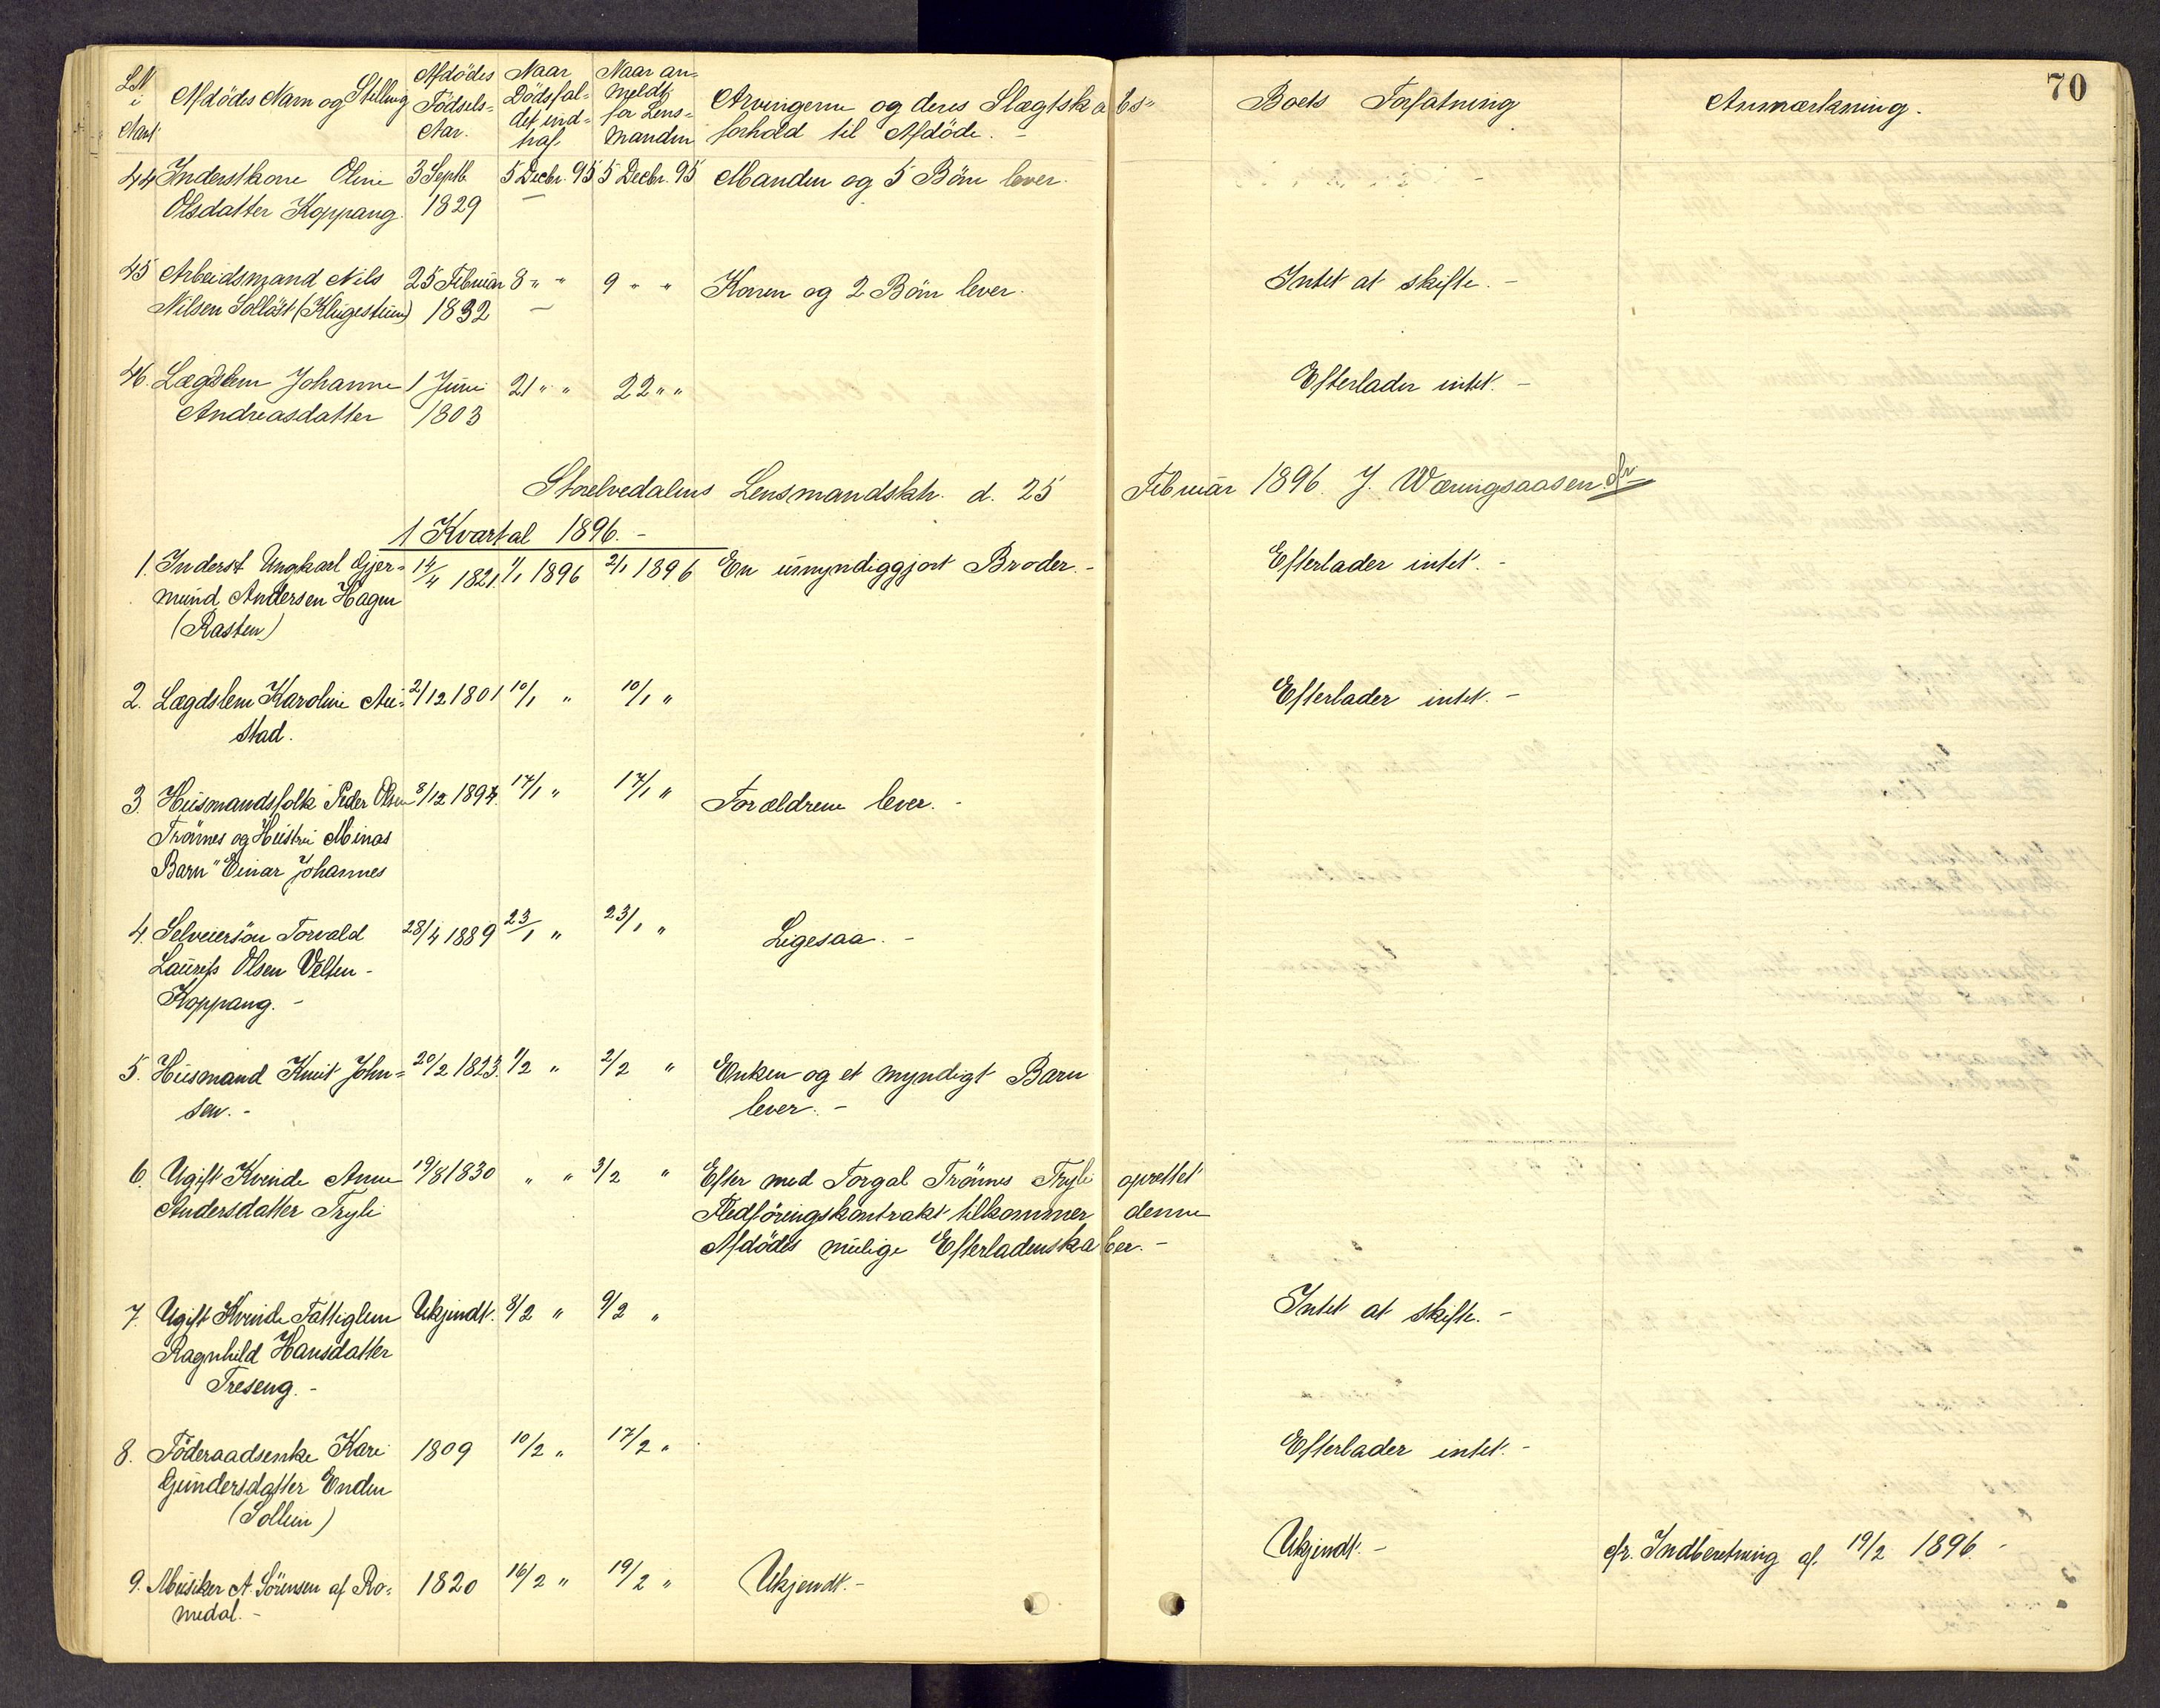 70
LN i Aaret
Afdödes Navn og Stilling
Afdödes Födsels-Aar.
Naar Dödsfaldet indtraf
Naar anmeldt for Lensmanden
Arvingerne og deres Slægtskabs-
forhold til Afdöde. -
Boets Forfatning
Anmærkning.
44 Inderstkone Oline 3 Septb. 5 Decbr. 95 5 Decbr. 95 Manden og 5 Börn lever.
Olsdatter Koppang. 1829 —
45 Arbeidsmand Nils 25 Februar 8 " " 9 " " Konen og 2 Börn lever. Intet at skifte. -
Nilsen Solläst (Klugestuen) 1832 —
46. Lægdslem Johanne 1 Juni 21 " " 22 " " Efterlader intet. -
Andreasdatter 1803
Storelvedalens Lensmandsktr. d. 25 Februar 1896. J. Wæringsaasen
1 Kvartal 1896. -
1. Inderst Ungkarl Gjer= 14/4 1821. 1/1 1896 2/1 1896 En umyndiggjort Broder. - Efterlader intet. -
mund Andersen Hagen
(Rasten)
2. Lægdslem Karoline Au= 2/12 1801 10/1 " 10/1 " Efterlader intet. -
stad.
3. Husmandsfolk Peder Olsen 8/12 1894. 17/1 " 17/1 " Forældrene lever. -
Trönnes og Hustru Minas
Barn "Einar Johannes
4. Selveiersön Torvald 28/4 1889 23/1 " 23/1 " Ligesaa. -
Laurits Olsen Velten-
Koppang. -
5. Husmand Knut John= 20/2 1823. 1/2 " 2/2 " Enken og et myndigt Barn
sen. - lever. -
6. Ugift Kvinde Anne 19/8 1830 " " 3/2 " Efter med Torgal Trönnes Tryli oprettet
Andersdatter Tryli Fledföringskontrakt tilkommer denne
Afdödes mulige Efterladenskaber. -
7. Ugift Kvinde Fattiglem Ukjendt. 8/2 " 9/2 " Intet at skifte. -
Ragnhild Hansdatter
Treseng. -
8. Föderaadsenke Kari 1809 10/2 " 17/2 " Efterlader intet. -
Gundersdatter Enden
(Sollien)
9. Musiker A. Sörensen af Ro= 1820 16/2 " 19/2 " Ukjendt. - Ukjendt. - cfr. Indberetning af 19/2 1896. -
medal. -